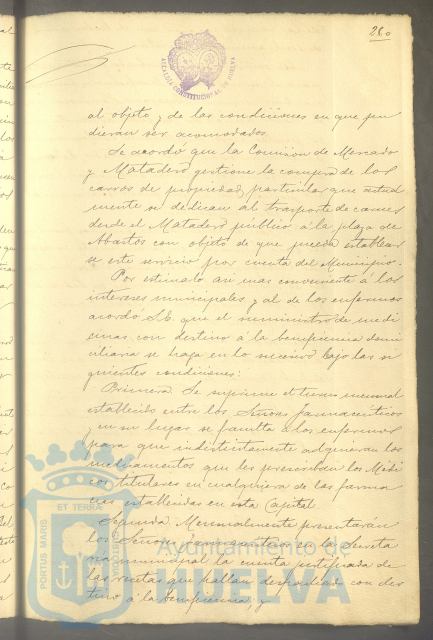 280
ALCALDÍA CONSTITUCIONAL DE HUELVA
al objeto y de las condiciones en que pu
dieran ser acomodados.
Se acordó que la Comisión de Mercado
y Matadero gestione la compra de los
carros de propiedad particular que actual
mente se dedican al trasporte de carnes
desde el Matadero público á la plaza de
Abastos con objeto de que pueda establecer
se este servicio por cuenta del Municipio.
Por estimarlo asi mas conveniente á los
intereses municipales y al de los enfermos
acordó S.E. que el suministro de medi
cinas con destino á la beneficencia domi
ciliaria se haga en lo sucesivo bajo las si
guientes condiciones:
Primera. Se suprime el turno mensual
establecido entre los Señores farmaceuticos
y en su lugar se faculta a los enfermos
para que indistintamente adquieran los
medicamentos que les prescriban los Médi
cos titulares en cualquiera de las farma
cias establecidas en esta Capital.
Segunda. Mensualmente presentarán
los Señores farmaceuticos en la Secreta
ria municipal la cuenta justificada de
las recetas que hallan despachado con des
tino á la beneficencia, y
PORTUS MARIS ET TERRAE CUSTODIA
Ayuntamiento de
HUELVA